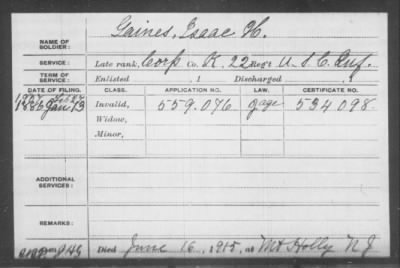 NAME OF SOLDIER: Gaines, Isaac H.
SERVICE: Late rank, Corp Co. K, 22 Reg't U.S.C. Inf.
TERM OF SERVICE: Enlisted , 1 Discharged , 1
DATE OF FILING. CLASS. APPLICATION NO. LAW. CERTIFICATE NO.
1886 Jan 13 Invalid, 559.076 534098.
Widow,
Minor,
ADDITIONAL SERVICES:
REMARKS:
Died June 16, 1915, at Mt Holly N J